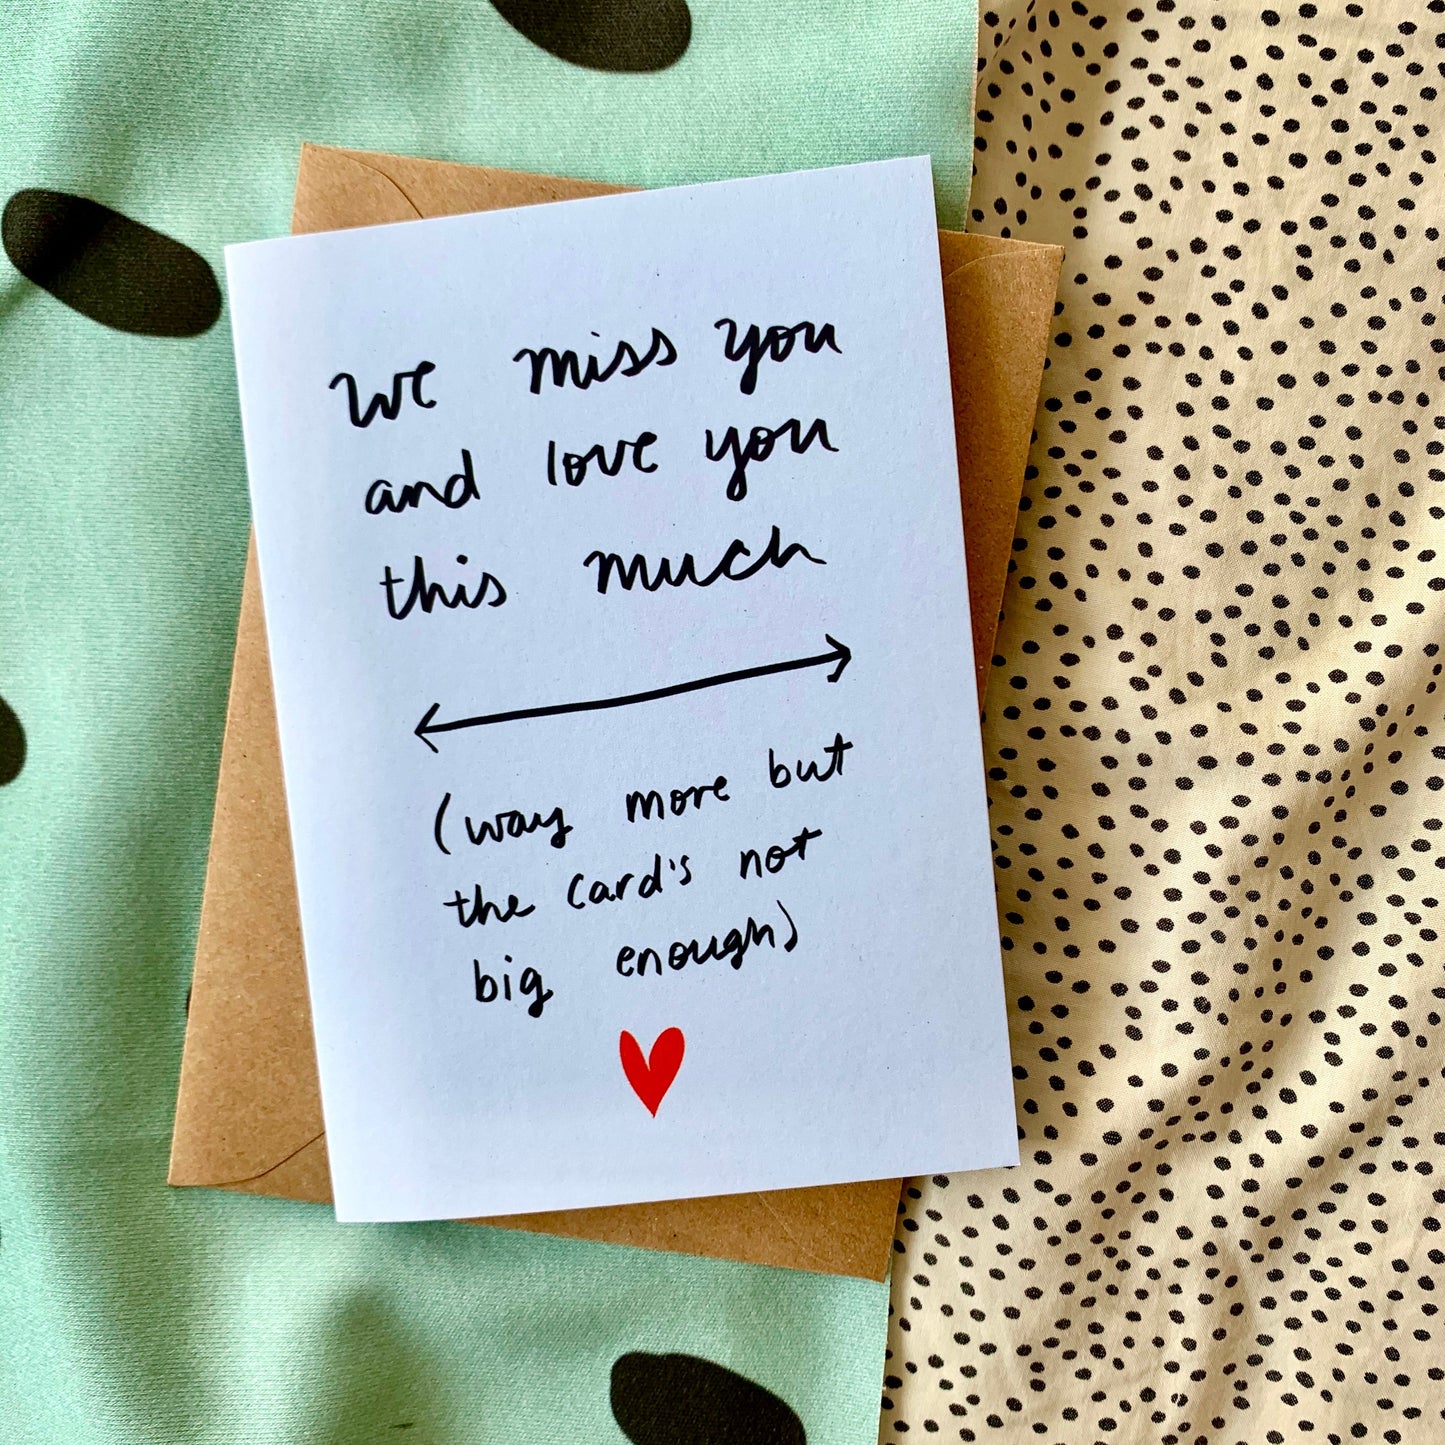 We miss you
and love you
this much
(way more but
the card's not
big enough)